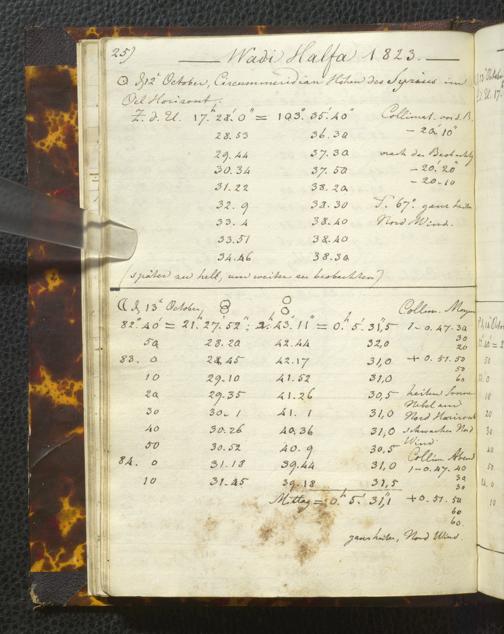 25)
Wadi Halfa 1823.
☉ d. 12t October, Circummeridian Höhen des Syrius im
Oel Horizont.
Z. d. U. 17.h 28.' 0" = 103.° 35.' 40" Collimat. vor d. B.
28.53 36.30 - 20.' 10"
29.44 37.30 nach der Beobachtg
30.34 37.50 - 20.' 20"
31.22 38.20 - 20.10
32.9 38.30 T. 67°. ganz heiter
33.4 38.40 Nord Wind.
33.51 38.40
34.46 38.30
(später zu hell, um weiter zu beobachten)
☾ d. 13t October, Collim. Morg
82.° 40' = 21.h 27.' 52" : 2.h 43.' 11" = 0.h 5.' 31,"5 1 - 0.47.30
50 28.20 42.44 32,0 30
20
83. 0 28.45 42.17 31,0 + 0.51.50
50
10 29.10 41.52 31,0 60
20 29.35 41.26 30,5 heitere Sonne
Nebel am
30 30. 1 41. 1 31,0 Nord Horizont
40 30.26 40.36 31,0 schwacher Nord
Wind
50 30.52 40. 9 30,5 Collim Abend
84. 0 31.18 39.44 31,0 1 - 0.47.40
30
10 31.45 39.18 31,5 30
Mittag = 0.h 5.' 31,"1 + 0.51.50
60
60.
ganz heiter, Nord Wind.